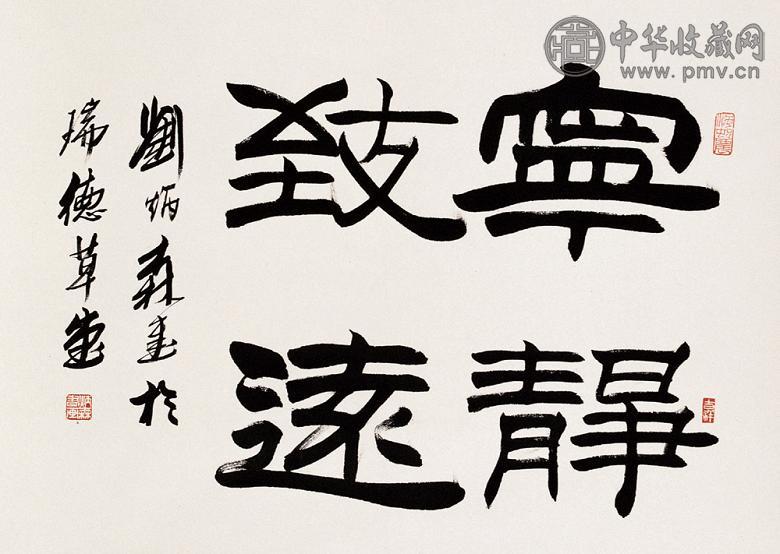 寧靜
致遠
劉炳森書於
瑞德草堂
中华收藏网
www.pmv.cn